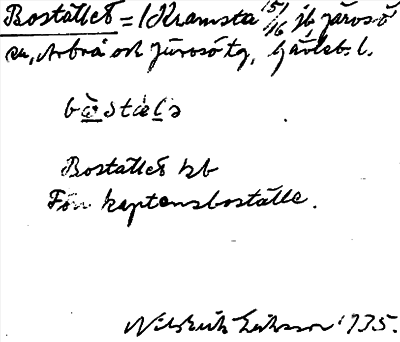 Bostället = 1 Kramsta 15/16 jb Järvsö
sn, Arbrå och Järvsö tg, Gävleb. l.
bὼstælə
Bostället kb
Förr kaptensboställe.
Nils Erik Eriksson 1935.